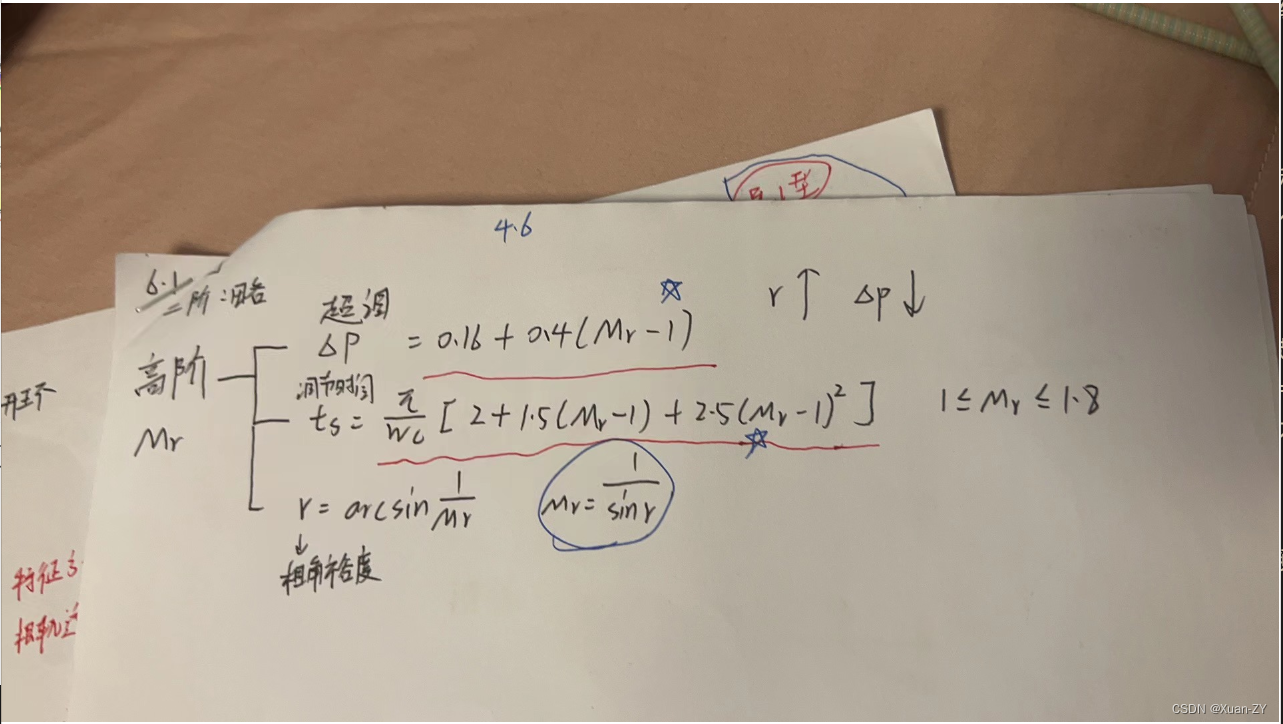 4.6
6.1
二阶:略
超调
ΔP = 0.16 + 0.4(Mr-1)
r↑ Δp↓
高阶
Mr
调节时间
ts = π/wc [2 + 1.5(Mr-1) + 2.5(Mr-1)²]
1 ≤ Mr ≤ 1.8
r = arcsin 1/Mr
Mr = 1/sin r
↓
相角裕度
开环
特征
根轨迹
CSDN @Xuan-ZY